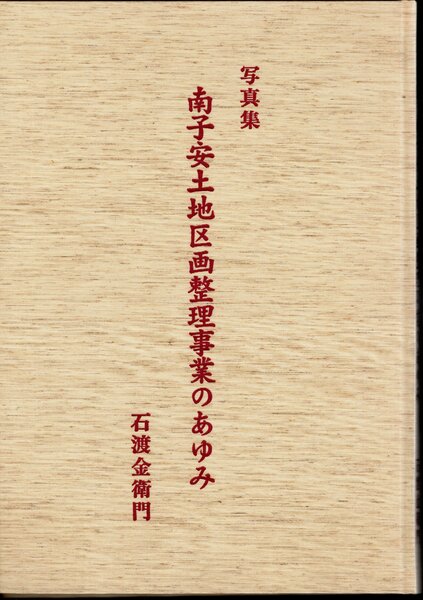 写真集
南子安土地区画整理事業のあゆみ
石渡金衛門